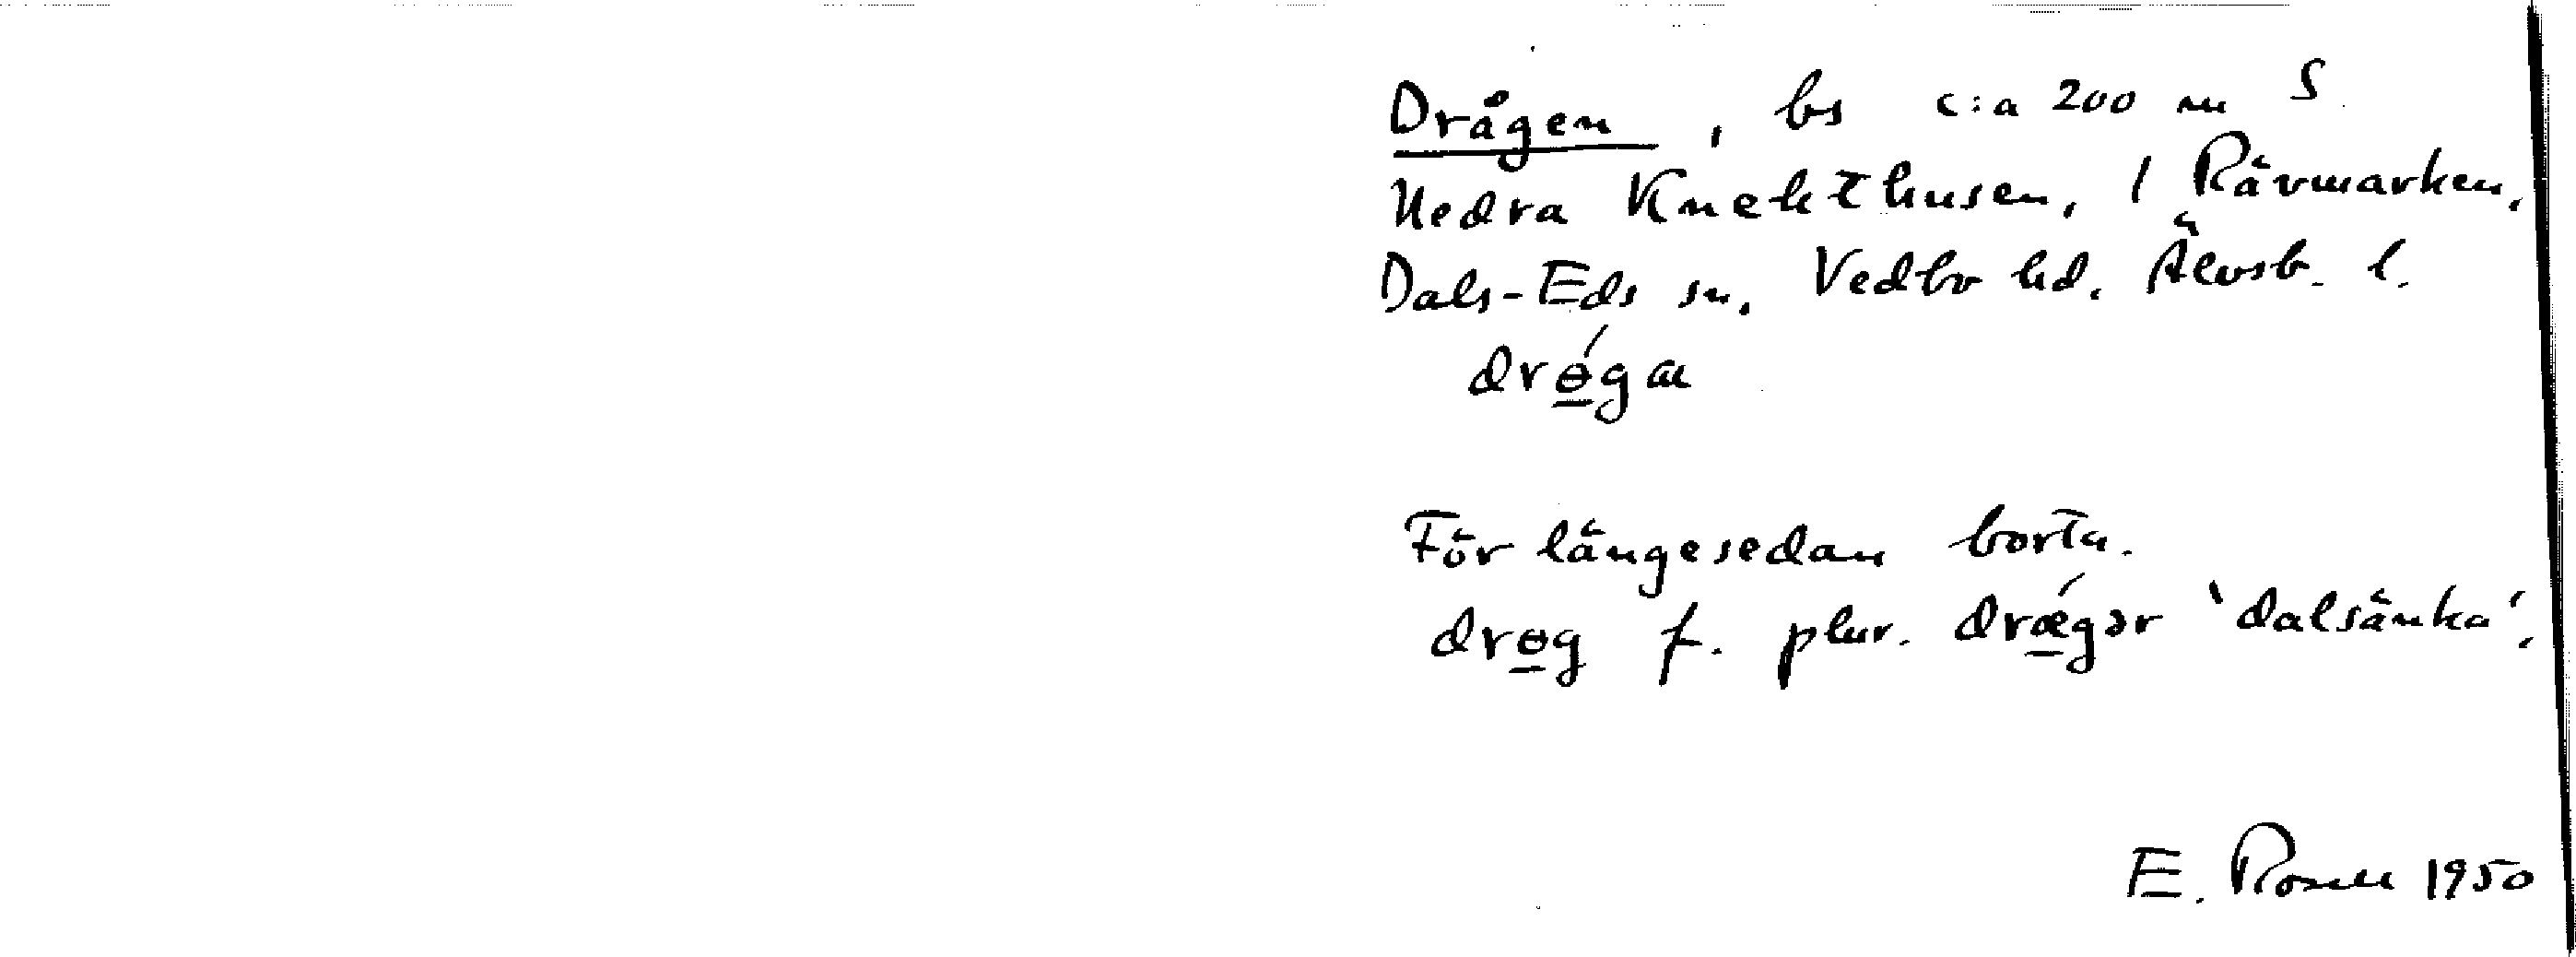 Drågen, bs c:a 200 m S
Nedra Knekthusen, 1 Rävmarken,
Dals-Eds sn, Vedbo hd. Älvsb. l.
drɵ́gæ
För längesedan borta.
drɵg f. plur. drǽgər 'dalsänka'.
E. Rosell 1950